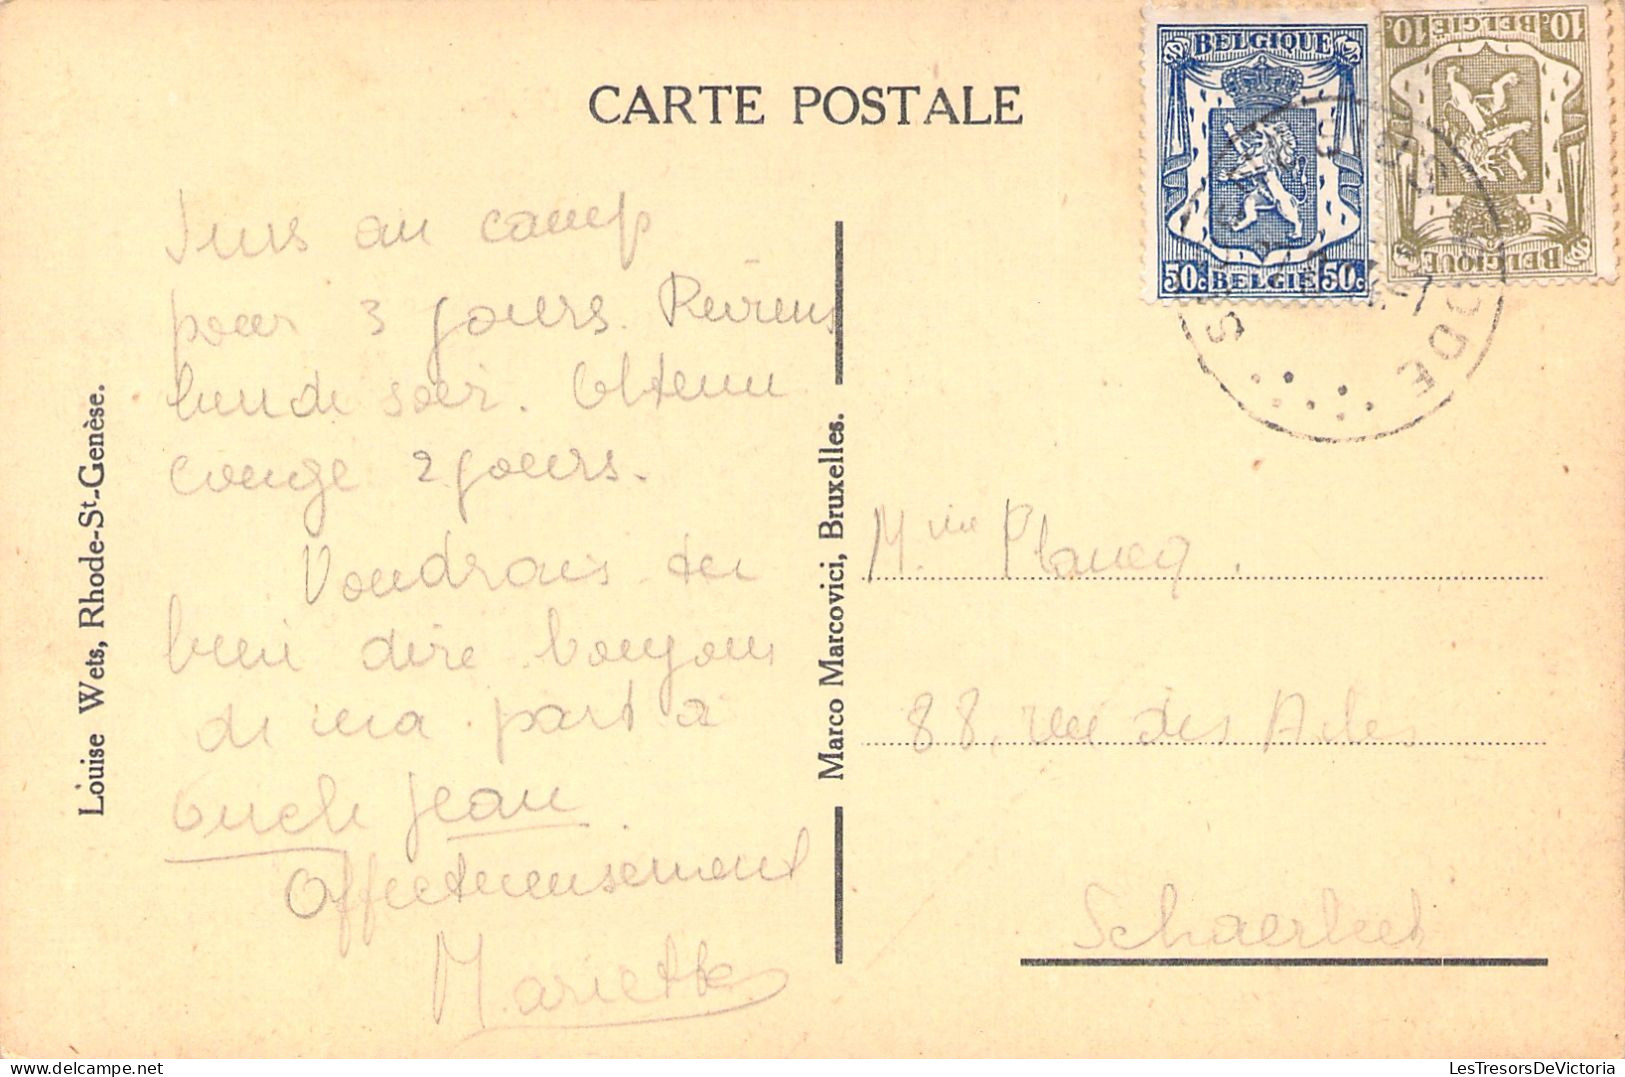 CARTE POSTALE
BELGIQUE
50c BELGIE 50c
10c BELGIE 10c
BELGIQUE
Suis au camp
pour 3 jours. Reviens
lundi soir. Obtenu
congé 2 jours.
Voudrais tu
bien dire bonjour
de ma part à
oncle Jean.
Affectueusement
Mariette
Louise Wets, Rhode-St-Genèse.
Marco Marcovici, Bruxelles.
Plancq.
88, rue des Ailes
Schaerbeek
LesTresorsDeVictoria